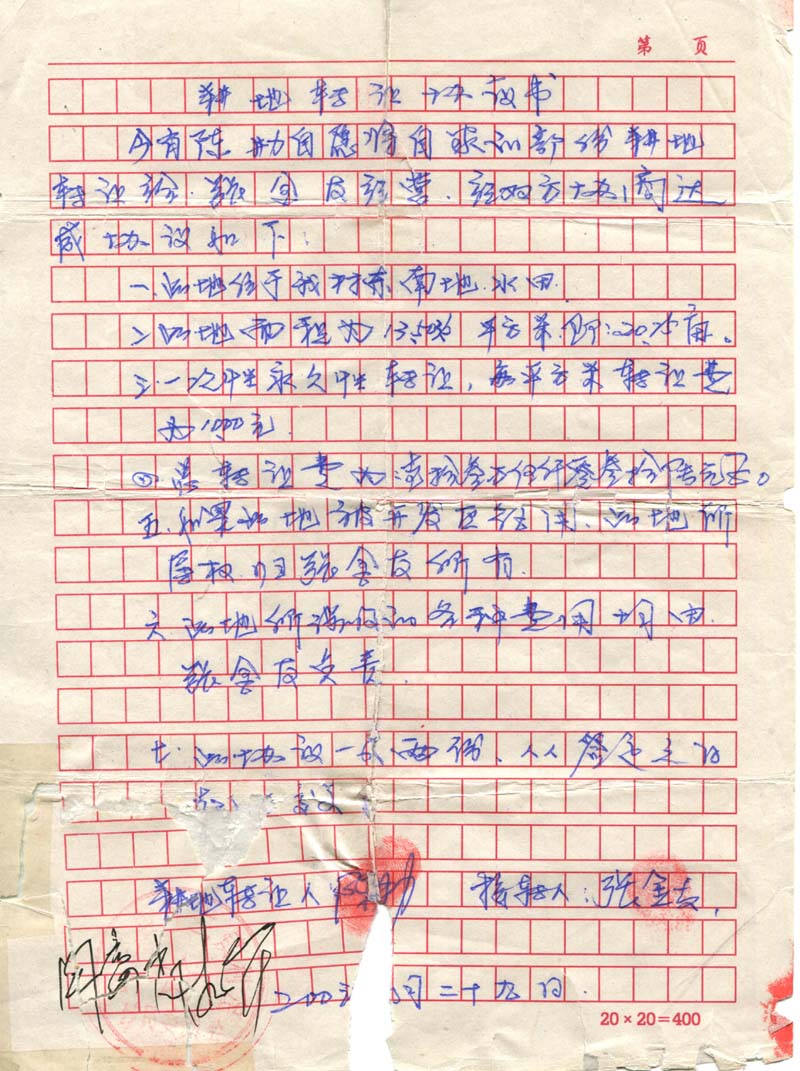 第 页
耕地转让协议书
今有陈 自愿将自家的部份耕地
转让给张金友经营.经双方协商达
成协议如下:
一.此地位于我村东南地.水田.
二.此地面积为13503 平方米.即:20.25亩。
三.一次性永久性转让,每平方米转让费
为10元.
四 总转让费为:壹拾叁万伍仟零叁拾 元正。
五.如果此地被开发区征用、此地所
属权归张金友所有.
六.此地所涉及的各种费用均由.
张金友负责.
七.此协议一式两份、从签定之日

耕地转让人 接转人:张金友.

二00三 月二十九日.
20×20=400